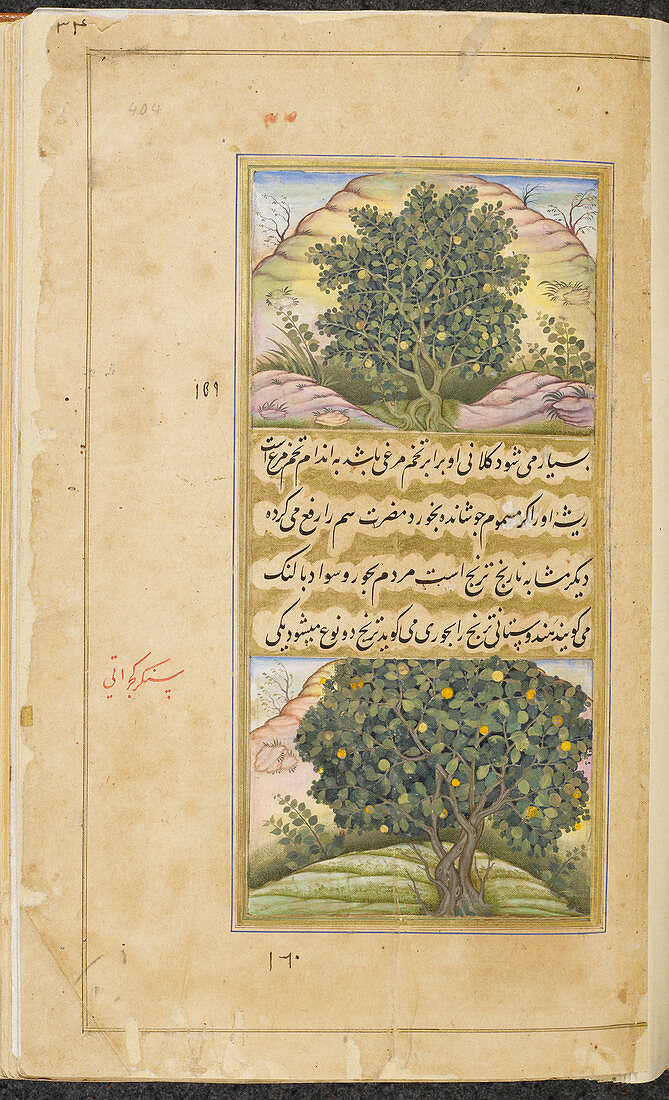 ۳۴
404
۱۵۹
بسیار می شود کلانی او برابر تخم مرغی باشد به اندام تخم مرغ است
ریشه او را اکر مسموم جوشانده بخورد مضرت سم را رفع می کرده
دیگر مشابه نارنج ترنج است مردم بجور و سواد بالنک
می کویند هندوستانی ترنج را بجوری می کوید ترنج دو نوع میشود یکی
کجراتی
۱۶۰